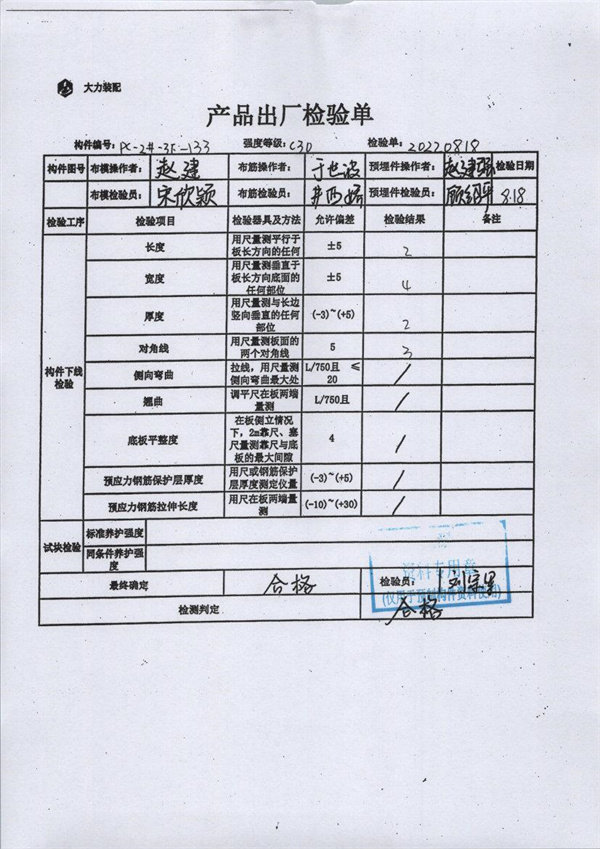 大力装配
产品出厂检验单
构件编号: PC-2#-3F-133 强度等级: C30 检验单: 20220818
构件图号 布模操作者: 赵建 布筋操作者: 于世波 预埋件操作者: 赵建强 检验日期
布模检验员: 宋欣颖 布筋检验员: 预埋件检验员: 8.18
检验工序 检验项目 检验器具及方法 允许偏差 检验结果 备注
构件下线检验
长度 用尺量测平行于板长方向的任何 ±5 2
宽度 用尺量测垂直于板长方向底面的任何部位 ±5 4
厚度 用尺量测与长边竖向垂直的任何部位 (-3)~(+5) 2
对角线 用尺量测板面的两个对角线 5 3
侧向弯曲 拉线,用尺量测侧向弯曲最大处 L/750且 ≤20 /
翘曲 调平尺在板两端量测 L/750且 /
底板平整度 在板侧立情况下,2m靠尺、塞尺量测靠尺与底板的最大间隙 4 /
预应力钢筋保护层厚度 用尺或钢筋保护层厚度测定仪量 (-3)~(+5) /
预应力钢筋拉伸长度 用尺在板两端量测 (-10)~(+30) /
试块检验 标准养护强度
同条件养护强度
最终确定 合格 检验员:
资料专用章
(仅用于预制构件资料使用)
检测判定 合格